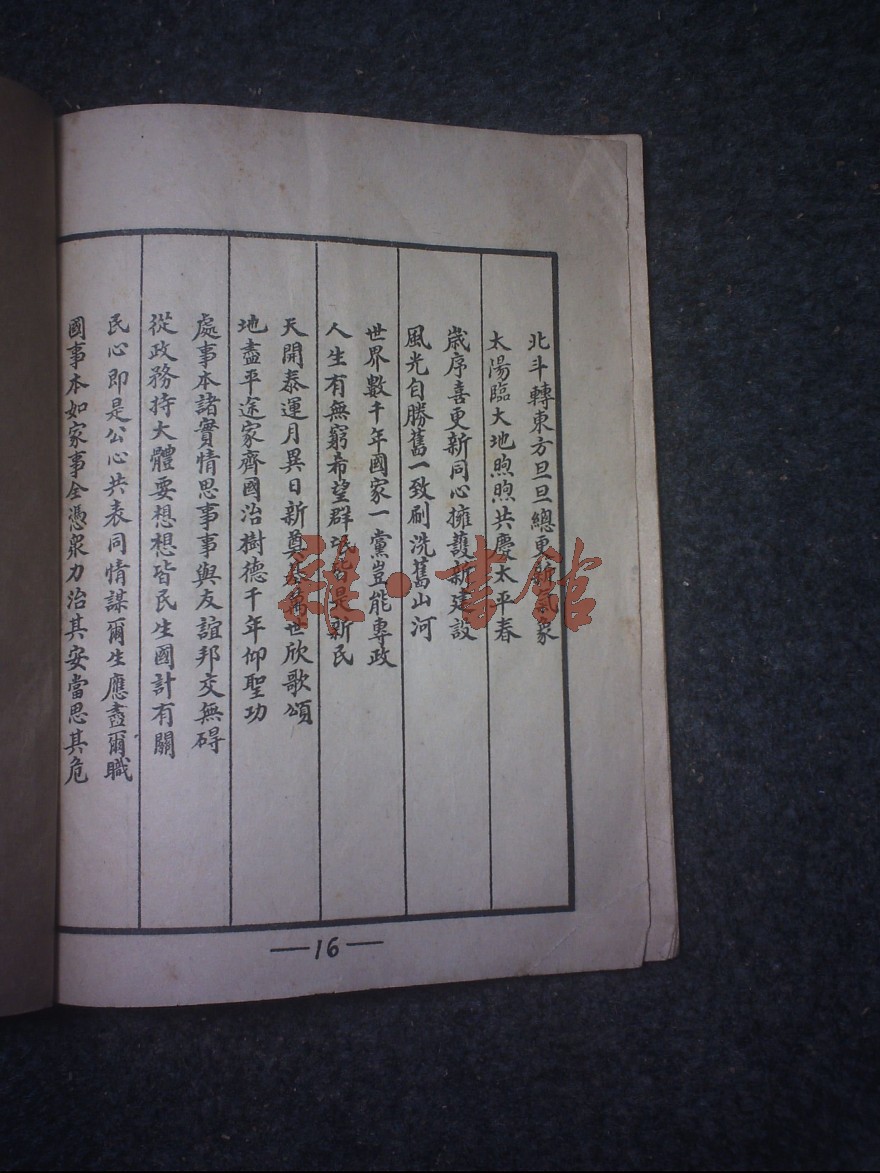 北斗轉東方旦旦總更新氣象
太陽臨大地煦煦共慶太平春
歲序喜更新同心擁護新建設
風光自勝舊一致刷洗舊山河
世界數千年國家一黨豈能專政
人生有無窮希望群氓皆是新民
天開泰運月異日新奠基萬世欣歌頌
地盡平途家齊國治樹德千年仰聖功
處事本諸實情思事事與友誼邦交無碍
從政務持大體要想想皆民生國計有關
民心即是公心共表同情謀爾生應盡爾職
國事本如家事全憑衆力治其安當思其危
16
雅·書館